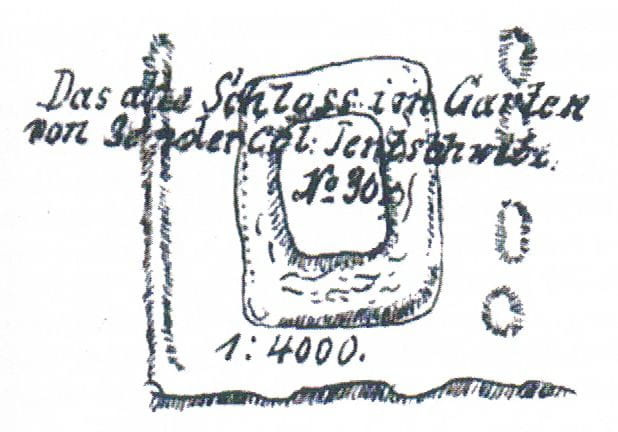 Das alte Schloss im Garten
von Col:
No 30
1:4000.